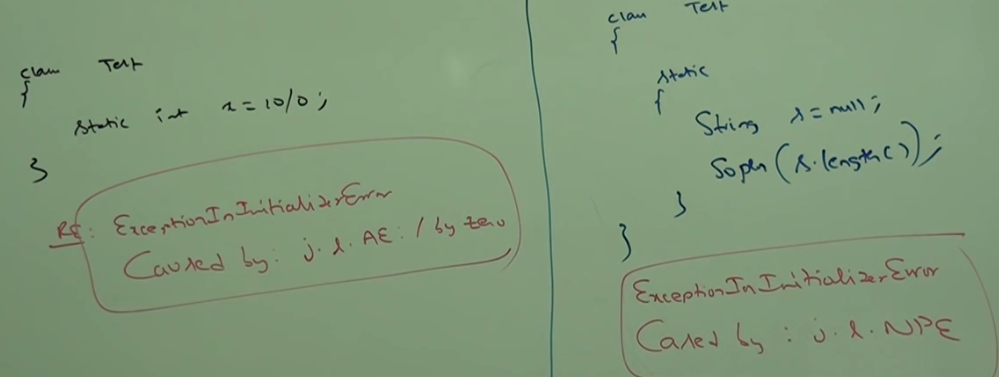 class Test
{
static int x = 10/0;
}
RE: ExceptionInInitializerError
Caused by: j.l.AE: / by zero
class Test
{
static
{
String s = null;
Sopln(s.length());
}
}
ExceptionInInitializerError
Caused by: j.l.NPE